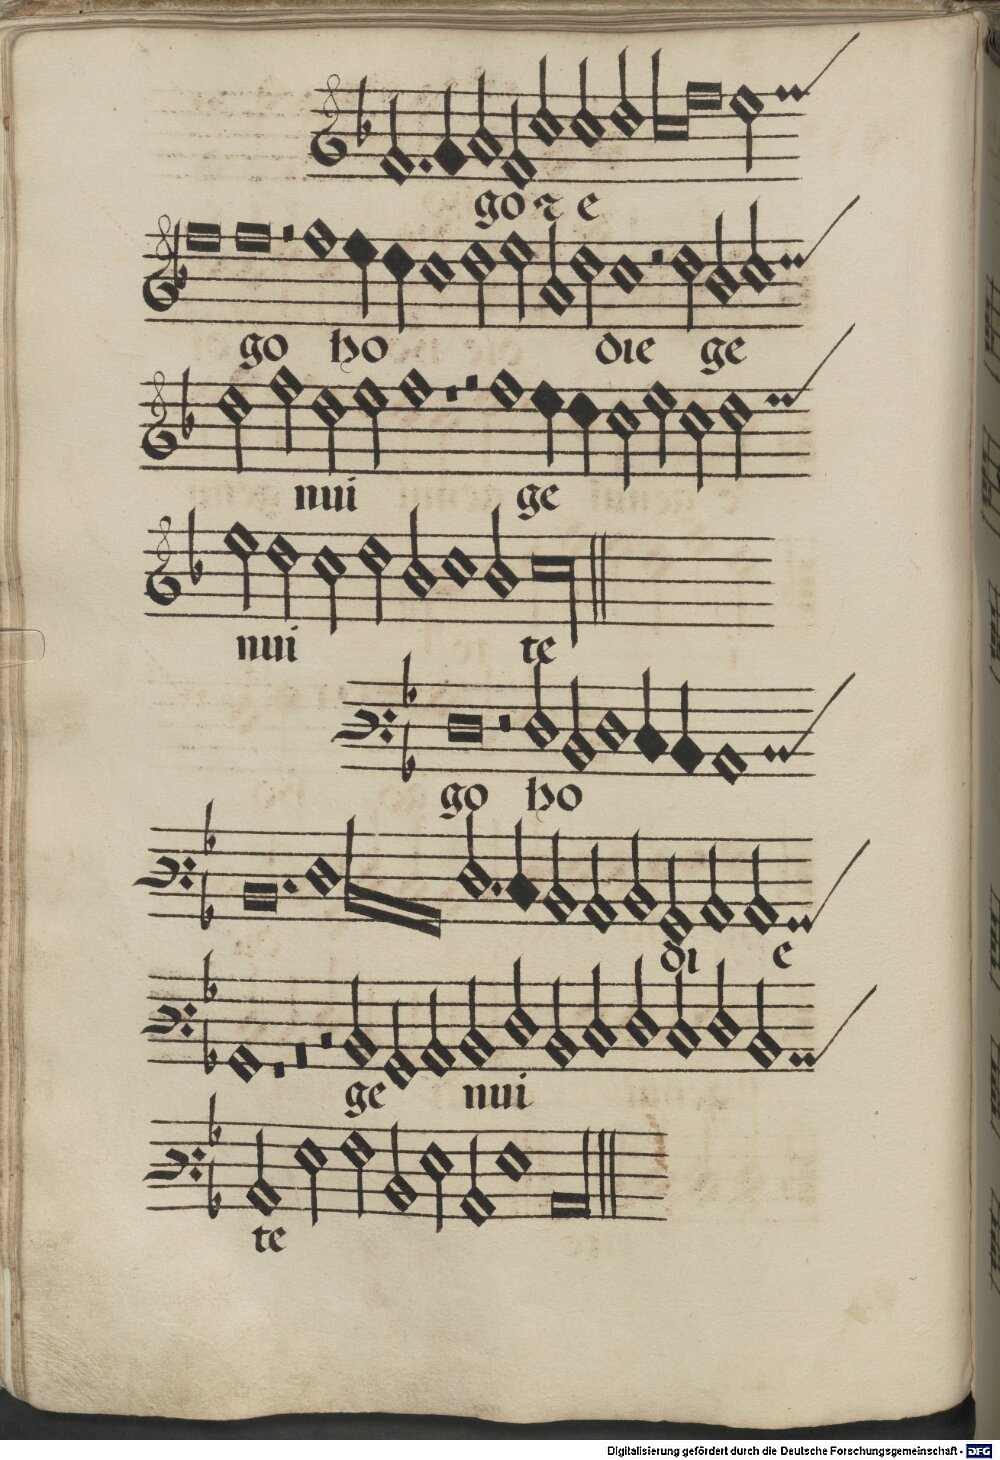 go ꝛ e
go ho die ge
nui ge
nui te
go ho
di e
ge nui
te
Digitalisierung gefördert durch die Deutsche Forschungsgemeinschaft - DFG